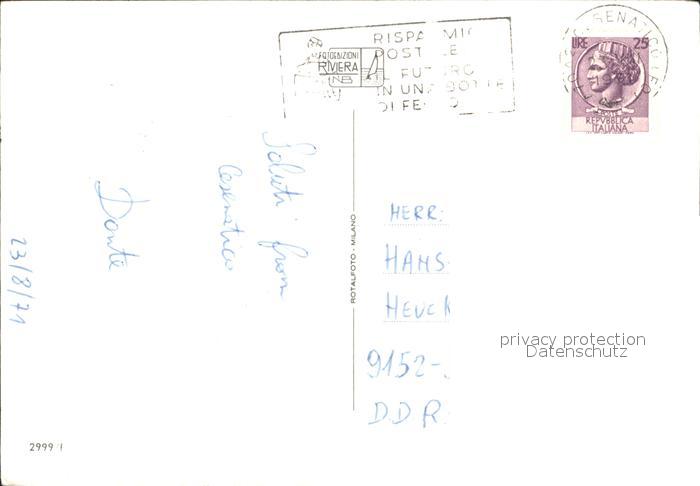 RISPA MIO
POST LE
IL FUTURO
IN UNA BOTTE
DI FE O
FOTOEDIZIONI
RIVIERA
NB
CESENATICO
LIRE 25
POSTE
REPVBBLICA
ITALIANA
Saluti from
Cesenatico
Donte
23/8/71
ROTALFOTO - MILANO
HERR:
HANS-
HEUCK
9152-
DDR
privacy protection
Datenschutz
2999